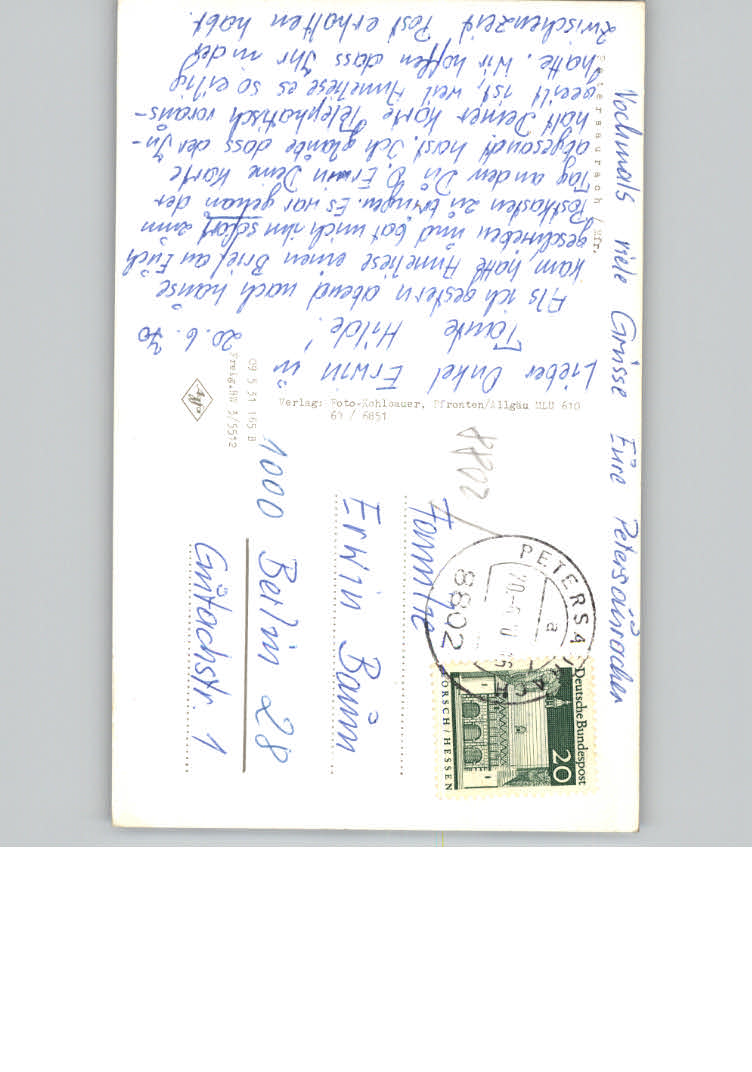 20.6.70
Lieber Onkel Erwin ü
Tante Hilde!
Als ich gestern abend nach hause
kam hatte Anneliese einen Brief an Euch
geschrieben und bat mich ihn sofort zum
Postkasten zu bringen. Es war gehau der
Tag an dem Du O. Erwin Deine Karte
abgesandt hast. Ich glaube dass der In-
halt Deiner Karte Telephatisch voraus-
geeilt ist, weil Anneliese es so eilig
hatte. Wir hoffen dass Ihr in der
zwischenzeit Post erhalten habt.
Nochmals viele Grüsse Eure Petersauracher
Petersaurach / Mfr.
Verlag: Foto-Kohlbauer, Pfronten/Allgäu MLU 610
61 / 6851
09 5 31 165 B
Freig.RM 3/5512
Agfa
8802
Familie
Erwin Baum
1000 Berlin 28
Gutachstr. 1
PETERSA
8802
a
Deutsche Bundespost
20
LORSCH / HESSEN